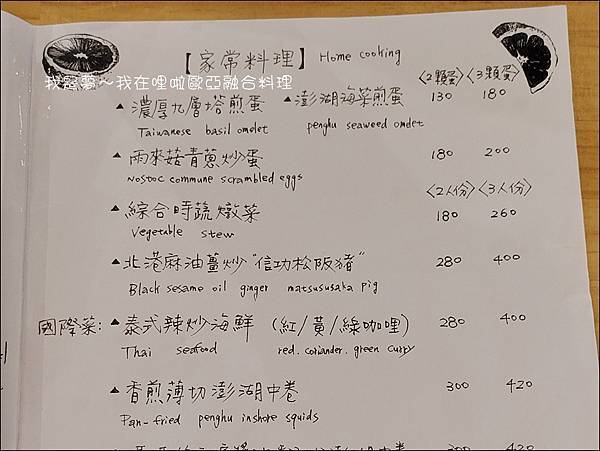 【家常料理】 Home cooking
我怒夢～我在哩啦歐亞融合料理
<2顆蛋> <3顆蛋>
▲濃厚九層塔煎蛋 ▲澎湖海菜煎蛋 130 180
Taiwanese basil omelet penghu seaweed omelet
▲雨來菇青蔥炒蛋 180 200
Nostoc commune scrambled eggs
<2人份> <3人份>
▲綜合時蔬燉菜 180 260
Vegetable stew
▲北港麻油薑炒"信功松阪豬" 280 400
Black sesame oil ginger matsususaka pig
國際菜:▲泰式辣炒海鮮 (紅/黃/綠咖哩) 280 400
Thai seafood red. coriander. green curry
▲香煎薄切澎湖中卷 300 420
Pan-fried penghu inshore squids
300 420